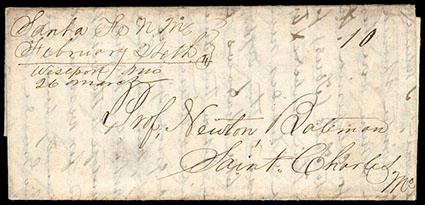 Santa Fe N Mo
February 24th
Westport Mo
26 March
10
Prof. Newton Bateman
Saint Charles
Mo